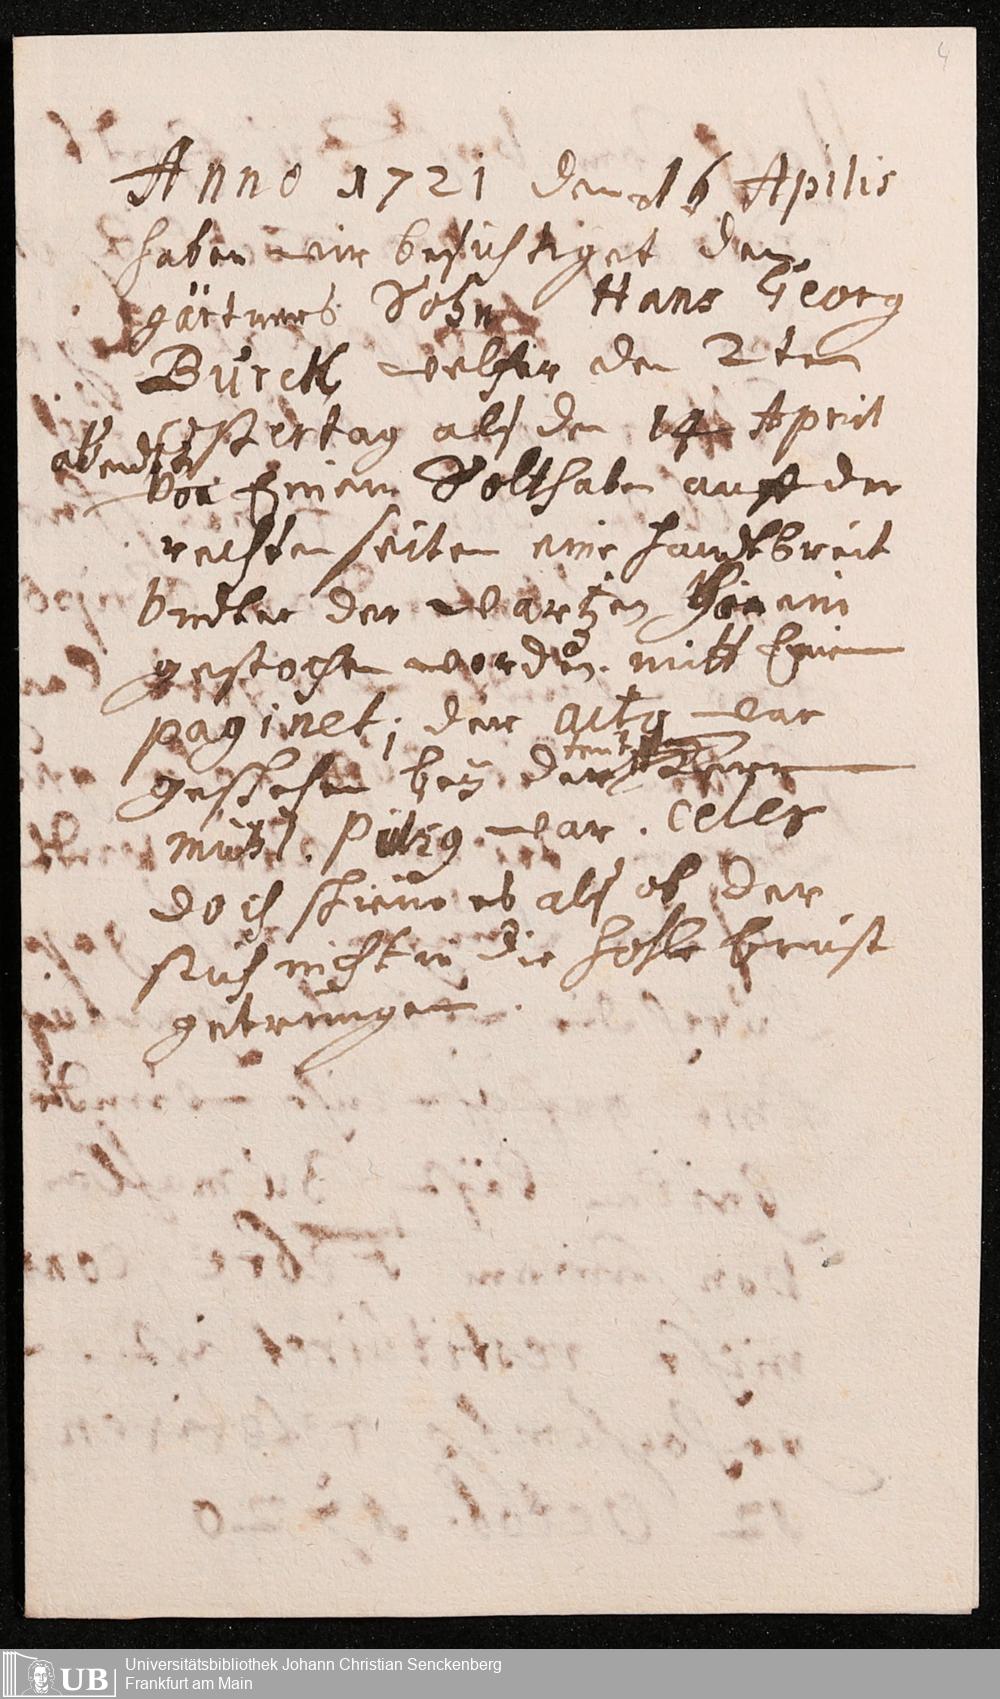 4
Anno 1721 den 16 Aprilis
haben wir besichtiget den
gärtners Sohn Hans Georg
Bürck welcher den 2ten
Ostertag alß den 14 April
abendts
von Einem Solthaten auff der
rechten seiten eine handtbreit
vndter der wartzen hinein
gestochen worden. mitt Einem
paginet; der actg war
geschehen bey der
mühl. pulzg war. celer
doch schiene es alß ob der
stich nicht in die hohle brust
getrungen.
UB Universitätsbibliothek Johann Christian Senckenberg
Frankfurt am Main